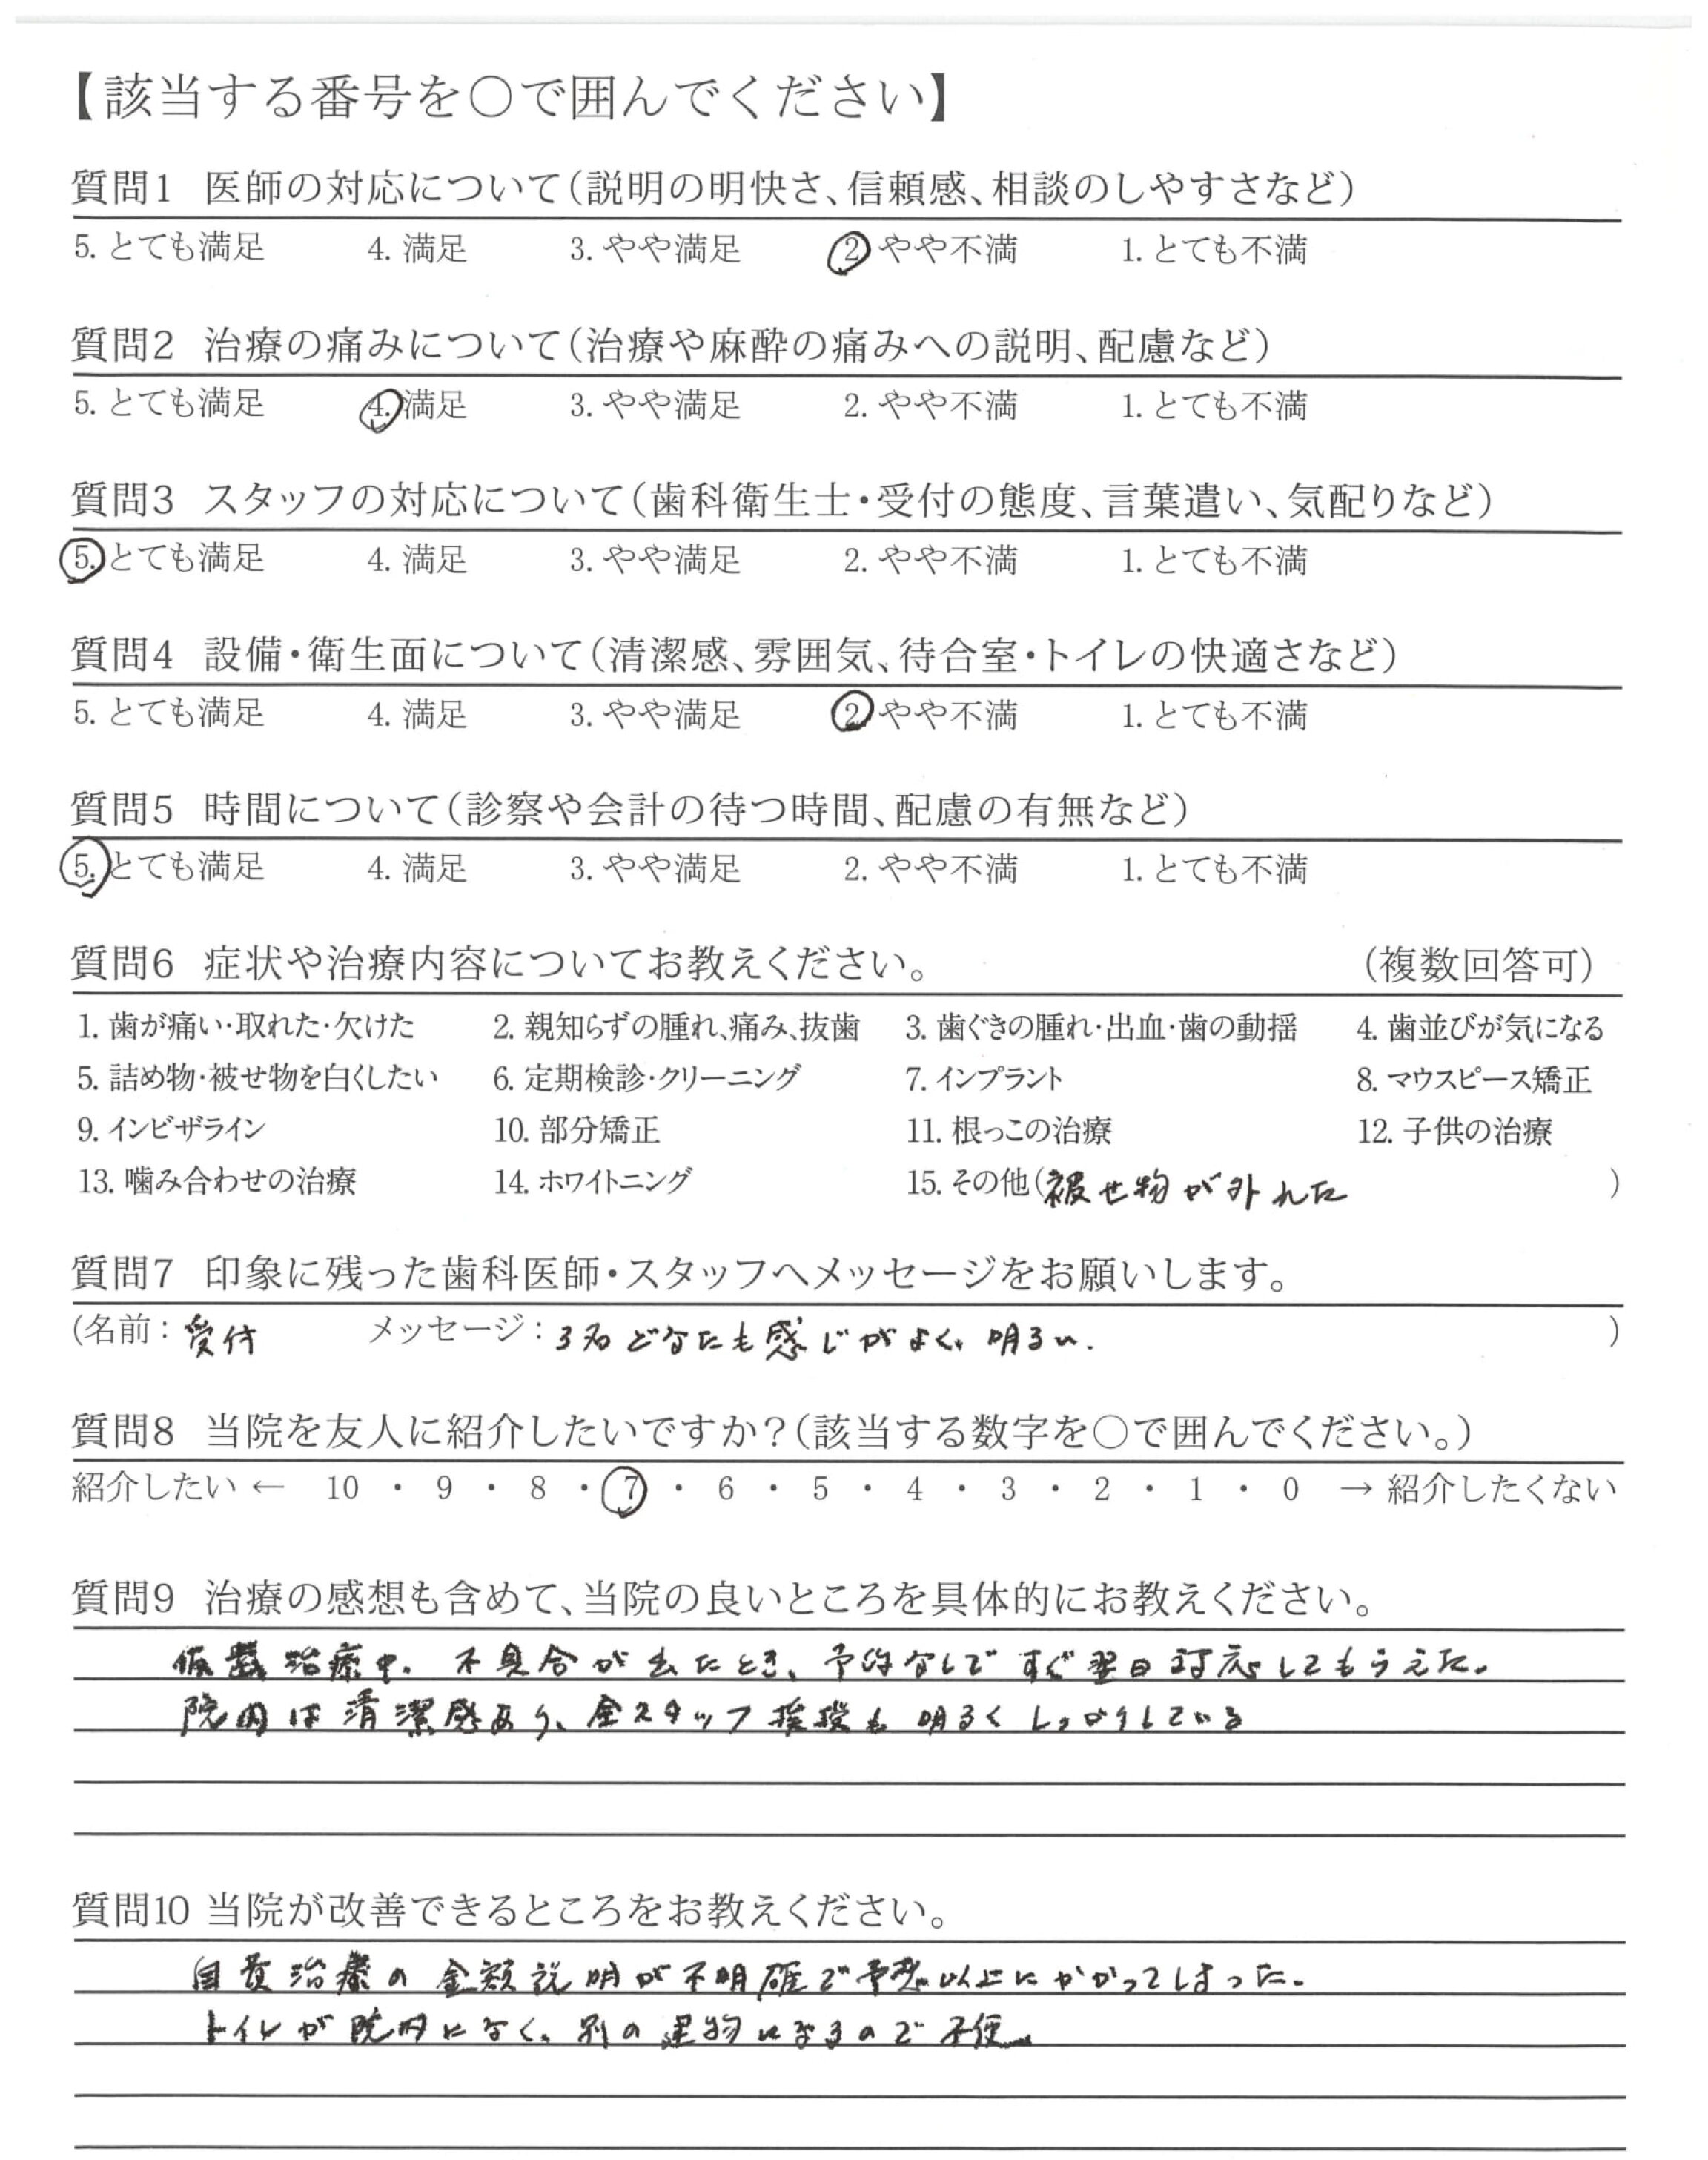 【該当する番号を○で囲んでください】
質問1 医師の対応について(説明の明快さ、信頼感、相談のしやすさなど)
5. とても満足 4. 満足 3. やや満足 2. やや不満 1. とても不満
質問2 治療の痛みについて(治療や麻酔の痛みへの説明、配慮など)
5. とても満足 4. 満足 3. やや満足 2. やや不満 1. とても不満
質問3 スタッフの対応について(歯科衛生士・受付の態度、言葉遣い、気配りなど)
5. とても満足 4. 満足 3. やや満足 2. やや不満 1. とても不満
質問4 設備・衛生面について(清潔感、雰囲気、待合室・トイレの快適さなど)
5. とても満足 4. 満足 3. やや満足 2. やや不満 1. とても不満
質問5 時間について(診察や会計の待つ時間、配慮の有無など)
5. とても満足 4. 満足 3. やや満足 2. やや不満 1. とても不満
質問6 症状や治療内容についてお教えください。 (複数回答可)
1. 歯が痛い・取れた・欠けた 2. 親知らずの腫れ、痛み、抜歯 3. 歯ぐきの腫れ・出血・歯の動揺 4. 歯並びが気になる
5. 詰め物・被せ物を白くしたい 6. 定期検診・クリーニング 7. インプラント 8. マウスピース矯正
9. インビザライン 10. 部分矯正 11. 根っこの治療 12. 子供の治療
13. 噛み合わせの治療 14. ホワイトニング 15. その他(被せ物が外れた )
質問7 印象に残った歯科医師・スタッフへメッセージをお願いします。
(名前：受付 メッセージ：3名どなたも感じがよく、明るい. )
質問8 当院を友人に紹介したいですか?(該当する数字を○で囲んでください。)
紹介したい ← 10 ・ 9 ・ 8 ・ 7 ・ 6 ・ 5 ・ 4 ・ 3 ・ 2 ・ 1 ・ 0 → 紹介したくない
質問9 治療の感想も含めて、当院の良いところを具体的にお教えください。
仮歯治療中、不具合が出たとき、予約なしですぐ翌日対応してもらえた。
院内は清潔感あり、全スタッフ挨拶も明るくしっかりしている
質問10 当院が改善できるところをお教えください。
自費治療の金額説明が不明確で予想以上にかかってしまった。
トイレが院内になく、別の建物になるので不便。